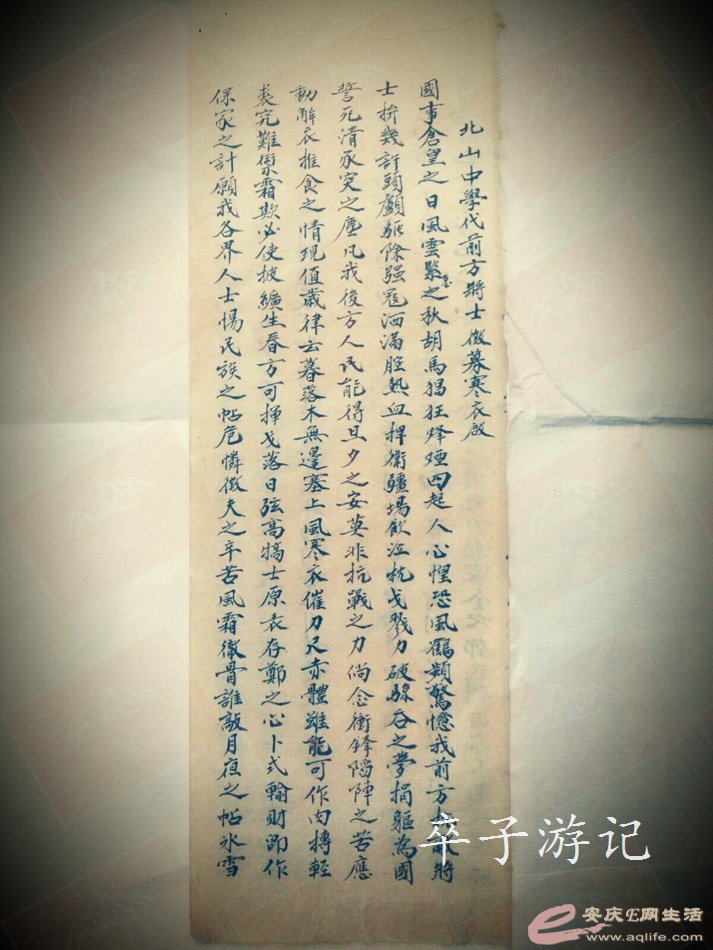 北山中學代前方將士徵募寒衣啟
國事倉皇之日風雲緊急之秋胡馬猖狂烽煙四起人心惶恐風鶴頻驚憶我前方將
士拚幾許頭顱驅除強寇洒滿腔熱血捍衛疆場飲泣枕戈戮力破驂吞之夢捐軀為國
誓死清承突之塵凡我後方人民能得旦夕之安莫非抗戰之力倘念衝鋒陷陣之苦應
動解衣推食之情現值歲律云暮落木無邊塞上風寒衣催刀尺赤體雖能可作肉搏輕
裘究難禦霜欺必使披纊生春方可揮戈落日弦高犒士原衣存鄭之心卜式輸財即作
保家之計願我各界人士惕民族之帖危憐徵夫之辛苦風霜徹骨誰敲月夜之帖冰雪
卒子游记
安庆E网生活
www.aqlife.com